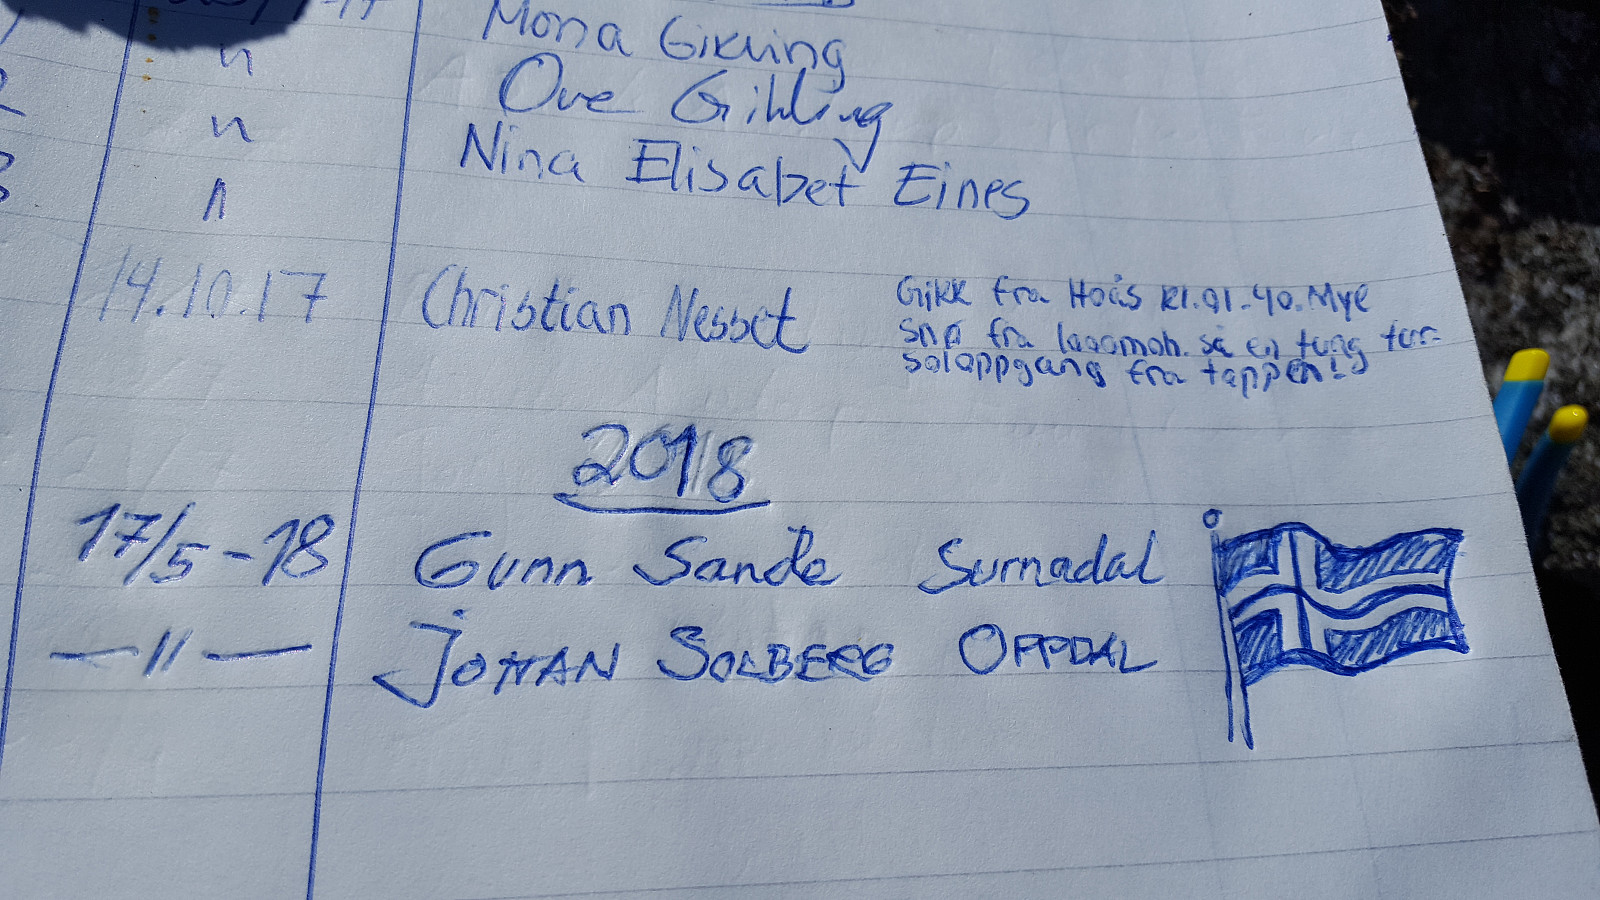 Mona Gikling
" Ove Gikling
" Nina Elisabet Eines
"
14.10.17 Christian Nesset Gikk fra Hoås kl. 01-40. Mye
snø fra så en tung tur-
soloppgang fra toppen!
2018
17/5-18 Gunn Sande Surnadal
—11— JOHAN SOLBERG OPPDAL